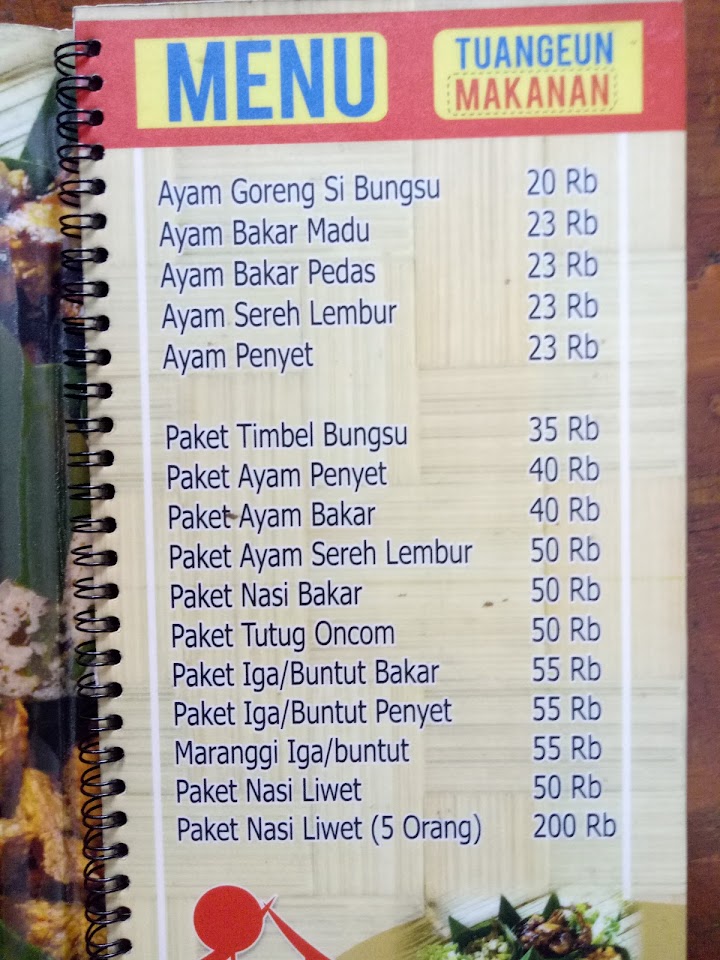 MENU
TUANGEUN
MAKANAN
Ayam Goreng Si Bungsu 20 Rb
Ayam Bakar Madu 23 Rb
Ayam Bakar Pedas 23 Rb
Ayam Sereh Lembur 23 Rb
Ayam Penyet 23 Rb
Paket Timbel Bungsu 35 Rb
Paket Ayam Penyet 40 Rb
Paket Ayam Bakar 40 Rb
Paket Ayam Sereh Lembur 50 Rb
Paket Nasi Bakar 50 Rb
Paket Tutug Oncom 50 Rb
Paket Iga/Buntut Bakar 55 Rb
Paket Iga/Buntut Penyet 55 Rb
Maranggi Iga/buntut 55 Rb
Paket Nasi Liwet 50 Rb
Paket Nasi Liwet (5 Orang) 200 Rb